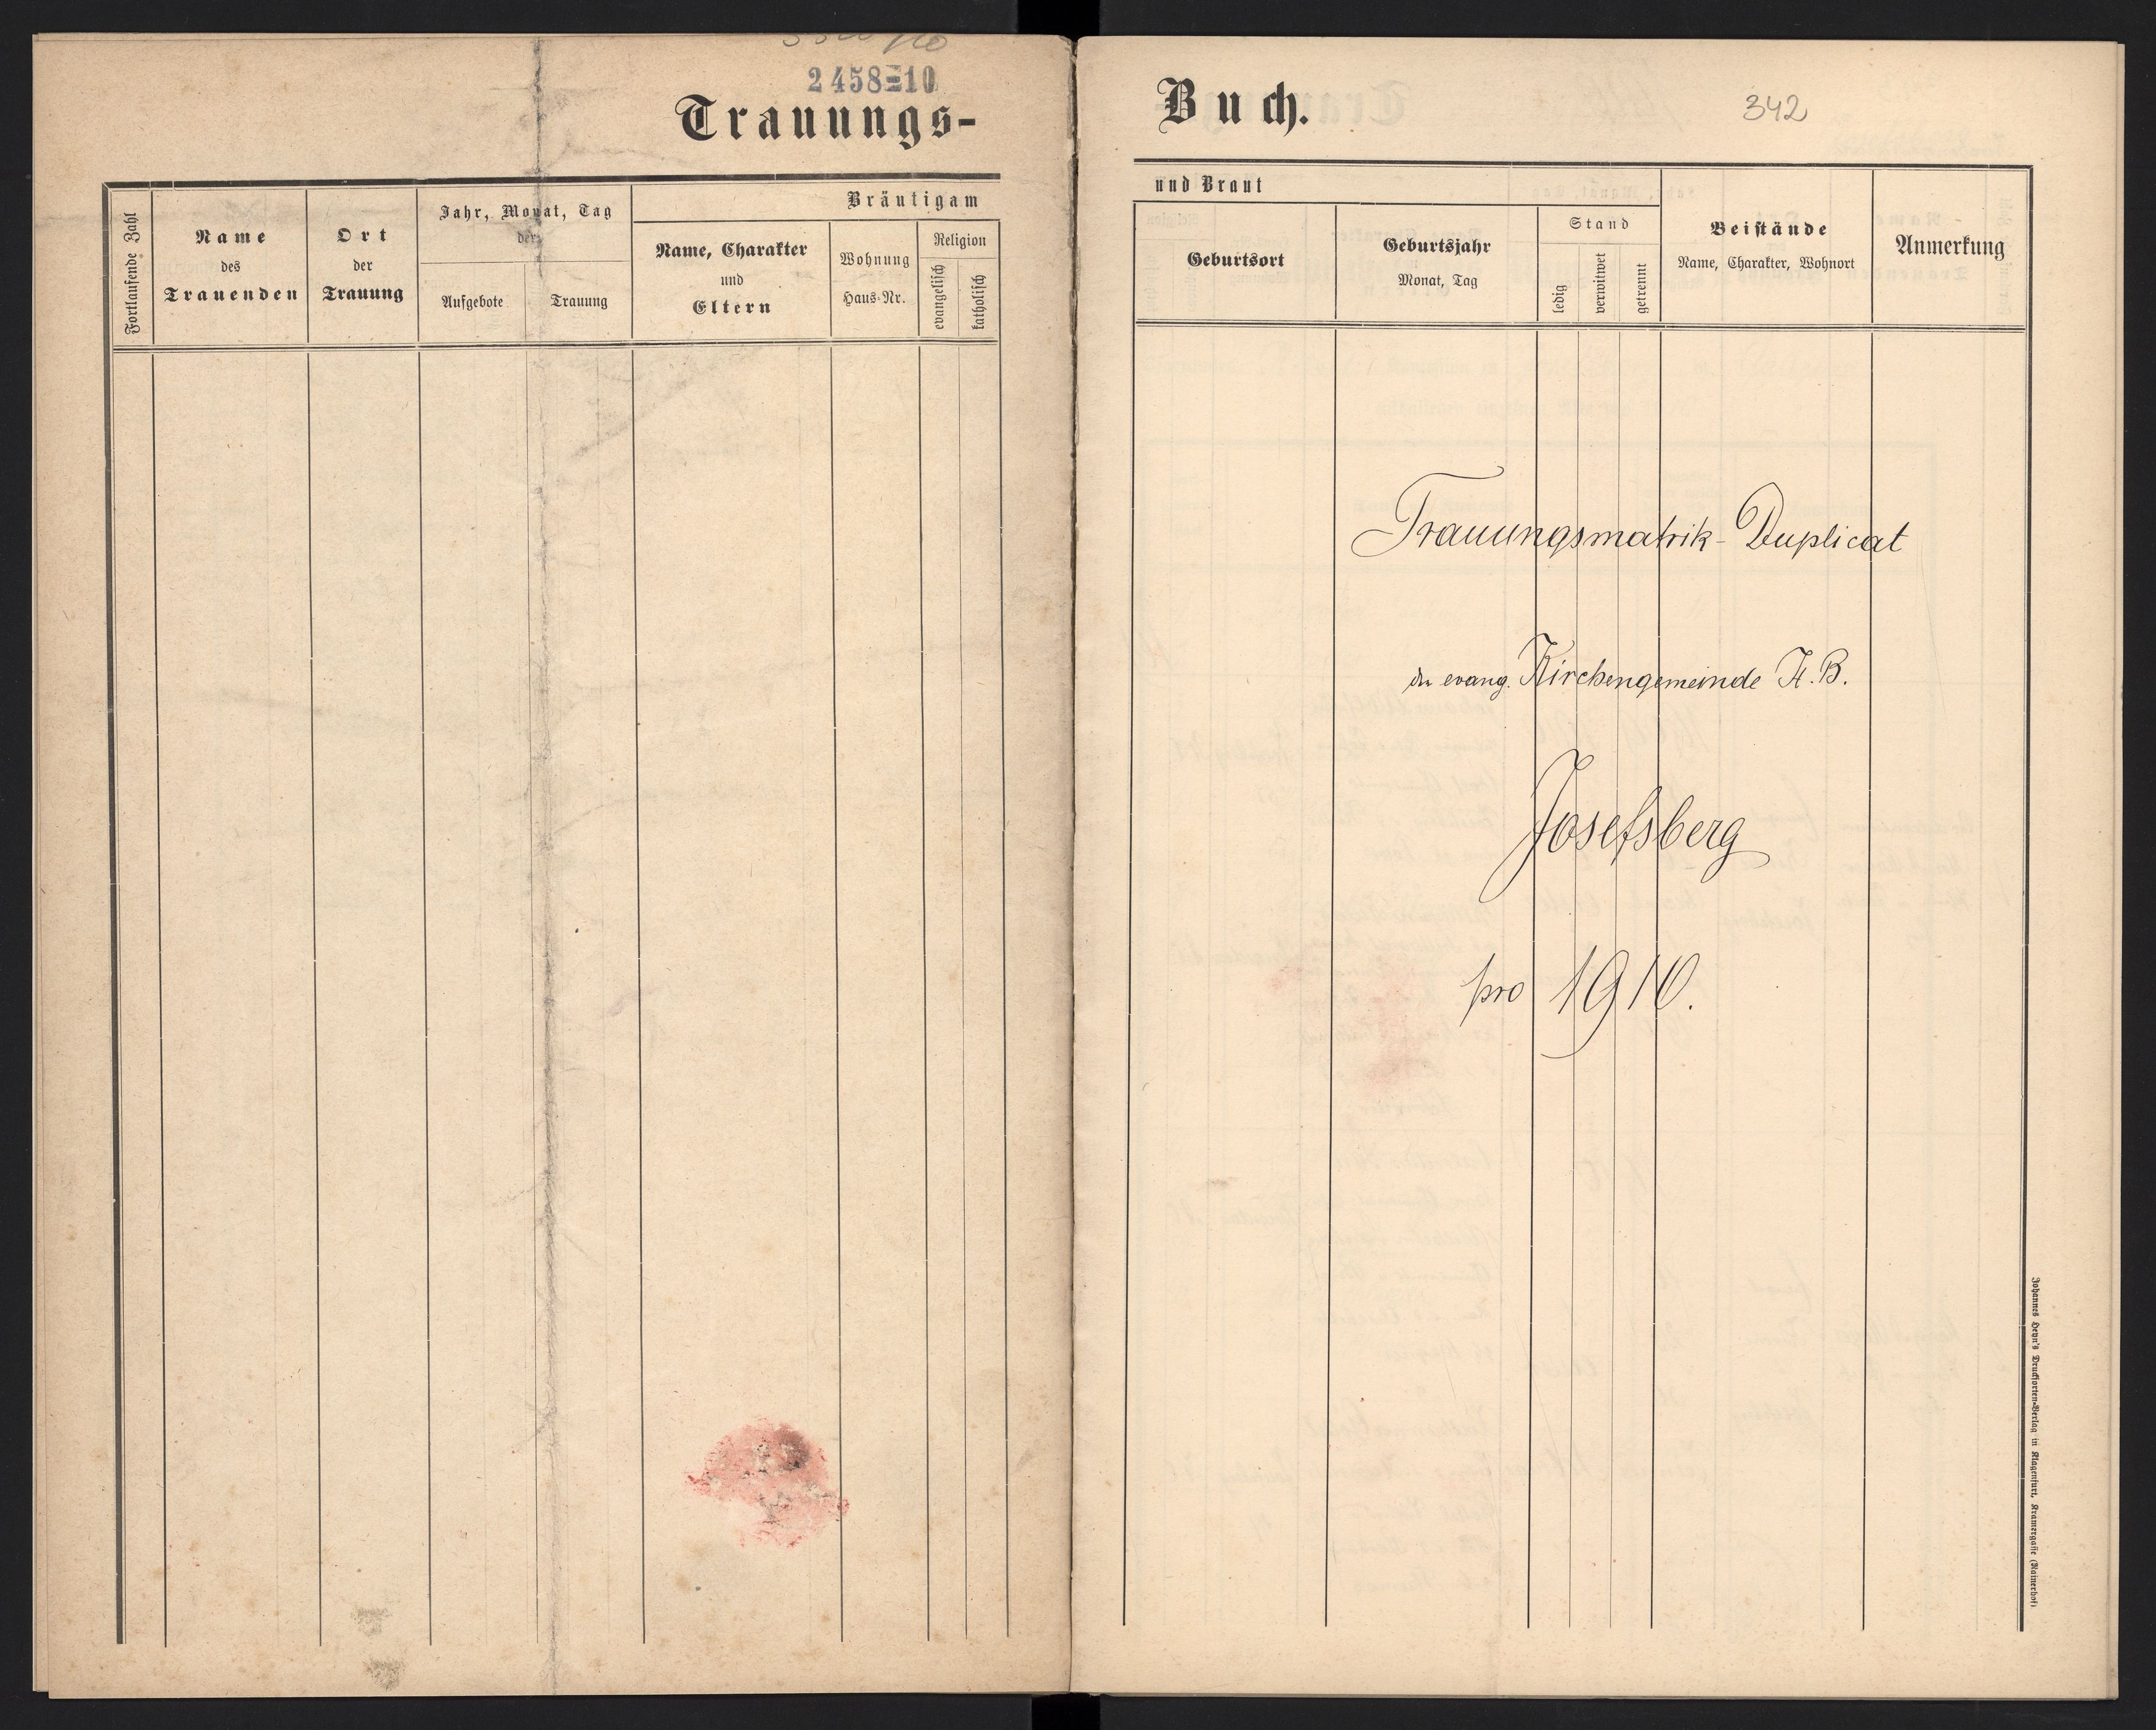 2458=10
Trauungs-
Fortlaufende Zahl
Name
des
Trauenden
Ort
der
Trauung
Jahr, Monat, Tag
der
Aufgebote
Trauung
Bräutigam
Name, Charakter
und
Eltern
Wohnung
Haus-Nr.
Religion
evangelisch
katholisch
Buch.
342
und Braut
Geburtsort
Geburtsjahr
Monat, Tag
Stand
ledig
verwitwet
getrennt
Beistände
Name, Charakter, Wohnort
Anmerkung
Trauungsmatrik-Duplicat
der evang. Kirchengemeinde H.B.
Josefsberg
pro 1910.
Johannes Heyn's Drucksorten-Verlag in Klagenfurt, Kramergasse (Rainerhof)